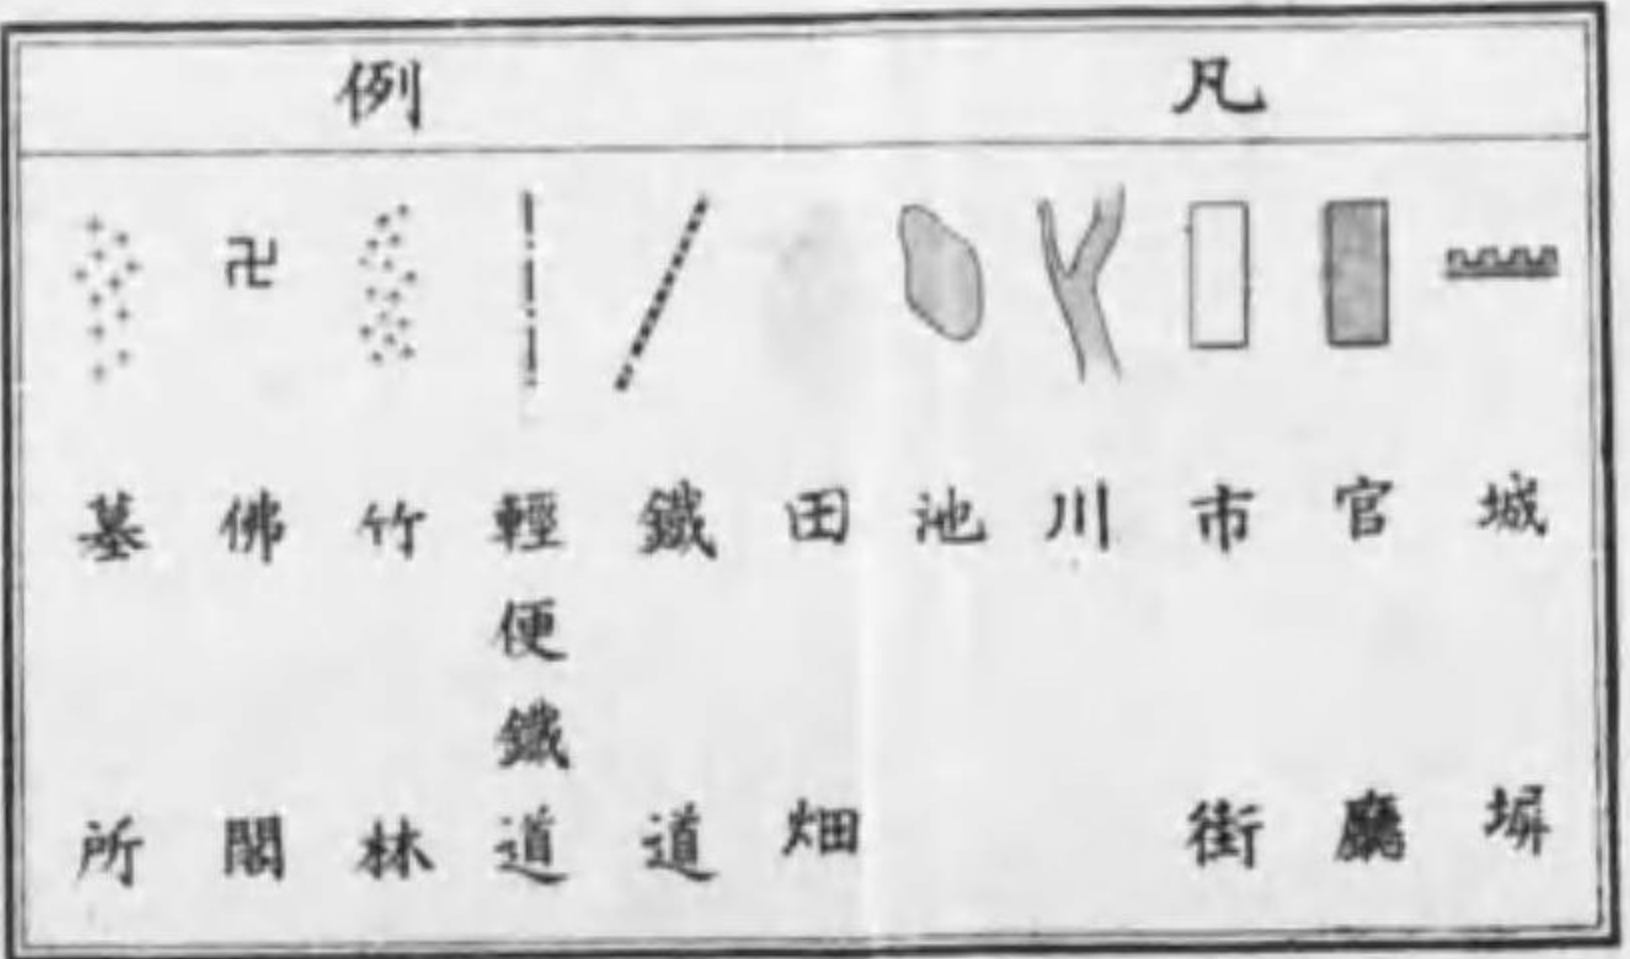 凡例
城塀
官廳
市街
川
池
田畑
鐵道
輕便鐵道
竹林
佛閣
墓所